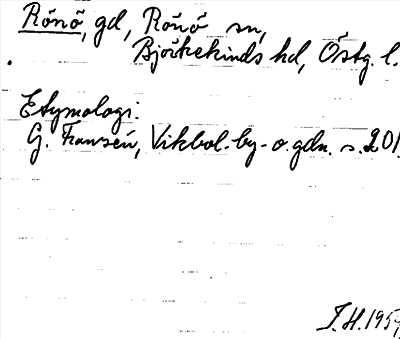 Rönö, gd, Rönö sn,
Björkekinds hd, Östg. l.
Etymologi:
G. Franzén, Vikbol. by- o. gdn. s. 201.
I.H. 195